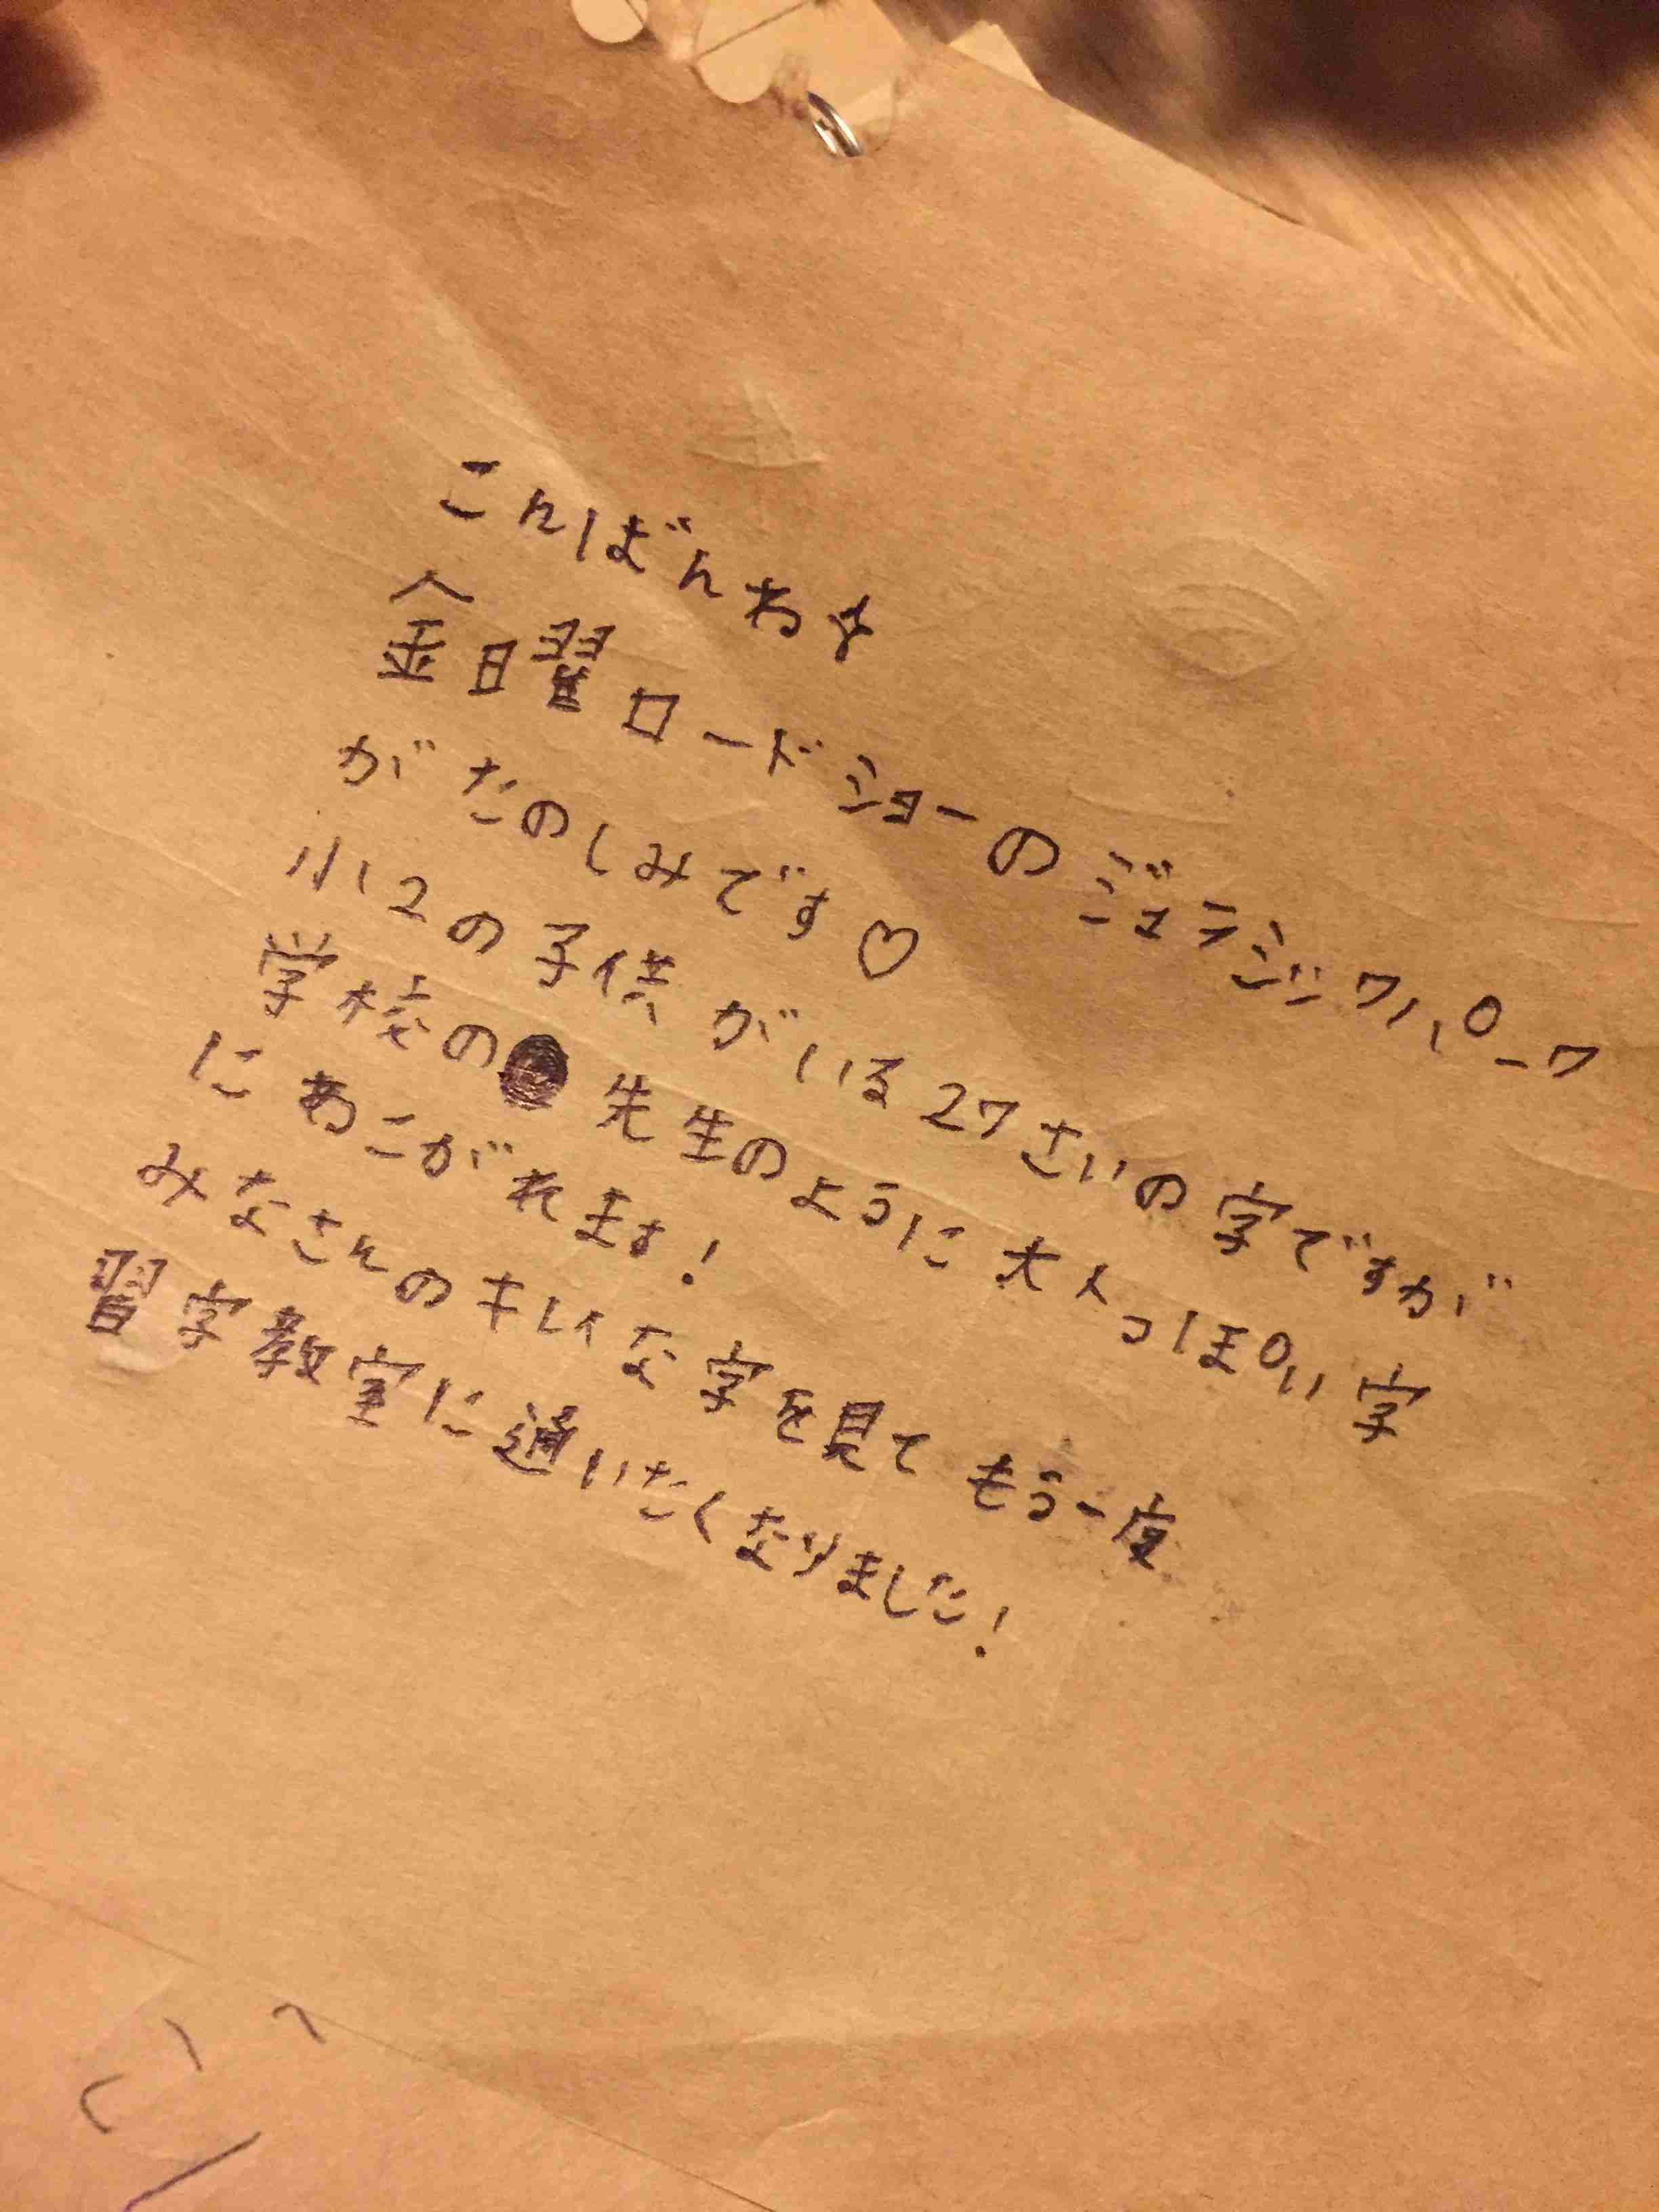 こんばんわ✧
金曜ロードショーのジュラシックパーク
がたのしみです♡
小2の子供がいる27さいの字ですが
学校の 先生のように大人っぽい字
にあこがれます!
みなさんのキレイな字を見てもう一度
習字教室に通いたくなりました!